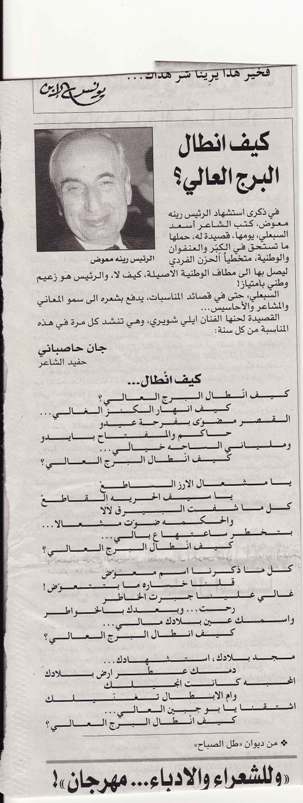 فخير هذا يرينا شر هذاك...
يونس الابن
كيف انطال
البرج العالي؟
الرئيس رينه معوض
في ذكرى استشهاد الرئيس رينه
معوض، كتب الشاعر اسعد
السبعلي، يومها، قصيدة له، حملها
ما تستحق في الكبر والعنفوان
والوطنية، متخطياً الحزن الفردي
ليصل بها الى مطاف الوطنية الاصيلة، كيف لا، والرئيس هو زعيم
وطني بامتياز!
السبعلي، حتى في قصائد المناسبات، يدفع بشعره الى سمو المعاني
والمشاعر والأحاسيس...
القصيدة لحنها الفنان ايلي شويري، وهي تنشد كل مرة في هذه
المناسبة من كل سنة:
جان حاصباني
حفيد الشاعر
كيف انطال...
كيف انطال البرج العالي؟
كيف انهار الكنز الغالي...
القصر مضوّى بفرحة عيدو
حاكم والمفتاح بايدو
وملفاني الراحه خيالي...
كيف انطال البرج العالي؟
يا مشعال الارز الساطع
يا سيف الحريه القاطع
كل ما شفت البيرق لالا
والحكمه ضوّت مشعالا...
بتخطر ساعتها ببالي...
كيف انطال البرج العالي؟
كل ما ذكرنا اسم معوّض
قلنا خساره ما بتتعوّض!
غالي علينا جبرت الخاطر
رحت... وبعدك بالخواطر
واسمك عين بلادك مالي...
كيف انطال البرج العالي؟
مجد بلادك، استشهادك...
دمك عطّر ارض بلادك
وام الابطال تغنيلك
اشتقنا يا بو جبين العالي...
كيف انطال البرج العالي؟
❖ من ديوان «طل الصباح»
«وللشعراء والادباء... مهرجان»!